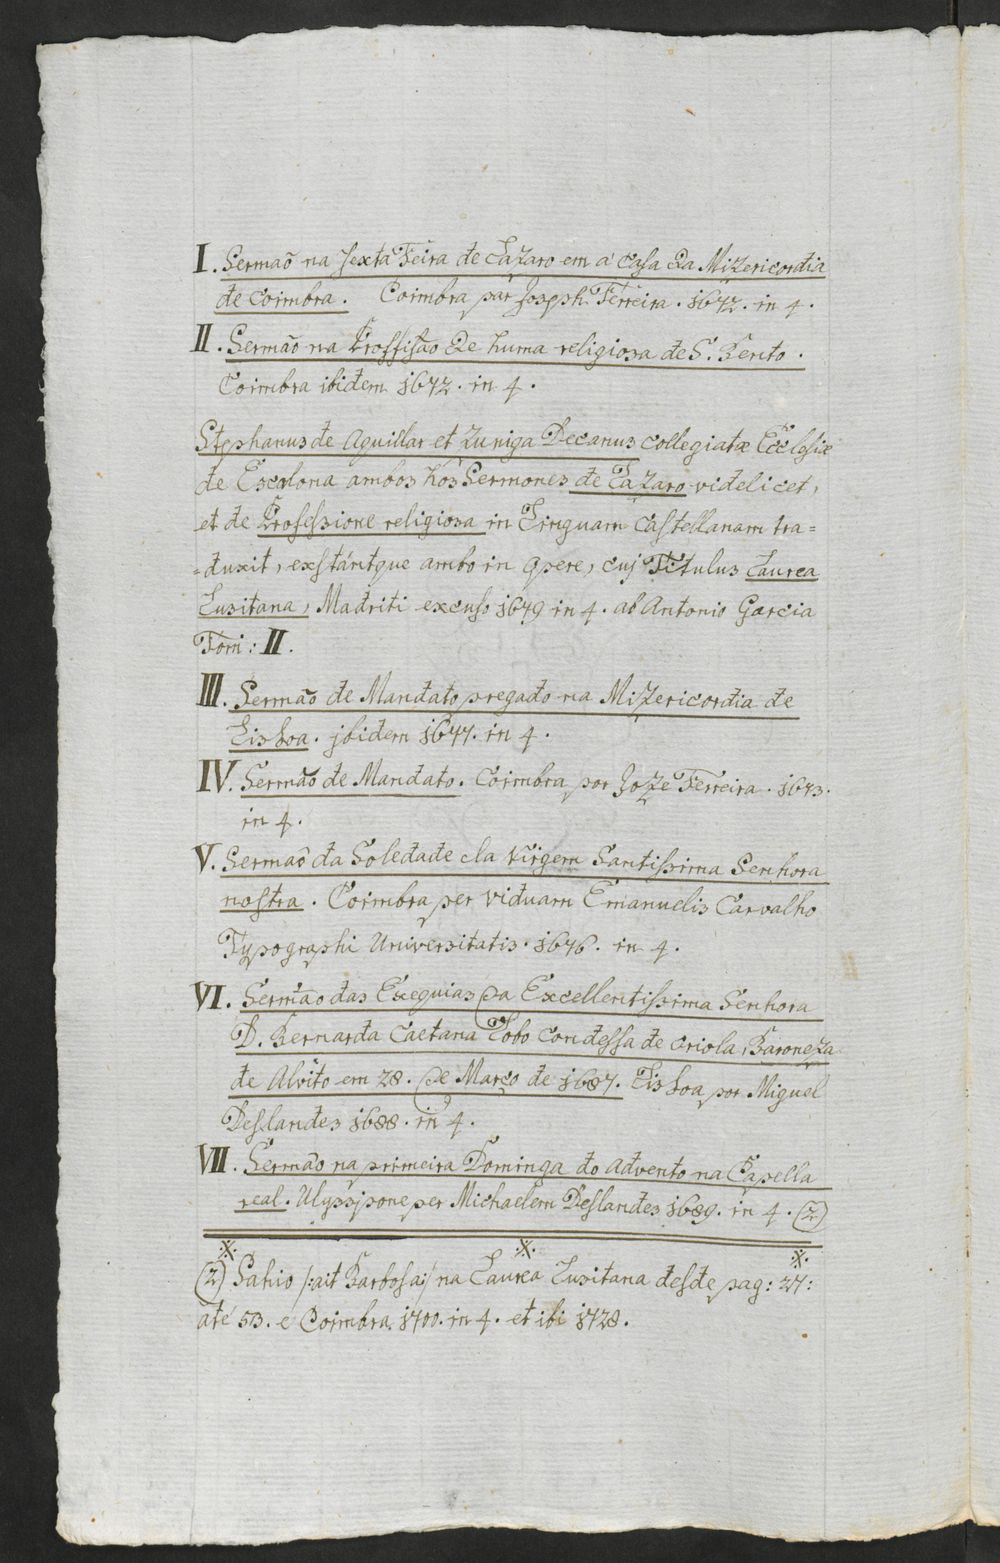 I. Sermaõ na sexta Feira de Lazaro em a casa da Mizericordia
de Coimbra. Coimbra par Joseph Ferreira. 1672. in 4.
II. Sermaõ na Proffisaõ de huma religiosa de S. Bento.
Coimbra ibidem 1672. in 4.
Stephanus de Aguillar et Zuniga Decanus collegiatæ Ecclesiæ
de Escalona ambos hos Sermones de Lazaro videlicet,
et de Professione religiosa in Linguam Castellanam tra=
=duxit, exstántque ambo in opere, cuj Titulus Laurea
Lusitana, Madriti excuss 1679 in 4. ab Antonio Garcia
Tom: II.
III. Sermaõ de Mandato pregado na Mizericordia de
Lisboa. jbidem 1677. in 4.
IV. Sermaõ de Mandato. Coimbra por Joze Ferreira. 1673.
in 4.
V. Sermaõ da Soledade da Virgem Santissima Senhora
nostra. Coimbra per viduam Emanuelis Carvalho
Typographi Universitatis. 1676. in 4.
VI. Sermaõ das Exequias da Excellentissima Senhora
D. Bernarda Caetana Lobo Condessa de Oriola, Baroneza
de Alvito em 28. de Março de 1687. Lisboa por Miguel
Deslandes 1688. in 4.
VII. Sermaõ na primeira Dominga do Advento na Capella
real. Ulyssipone per Michaelem Deslandes 1689. in 4. (2)
(2) Sahio /:ait Barbosa:/ na Laurea Lusitana desde pag: 27:
até 53. e Coimbra 1700. in 4. et ibi 1728.